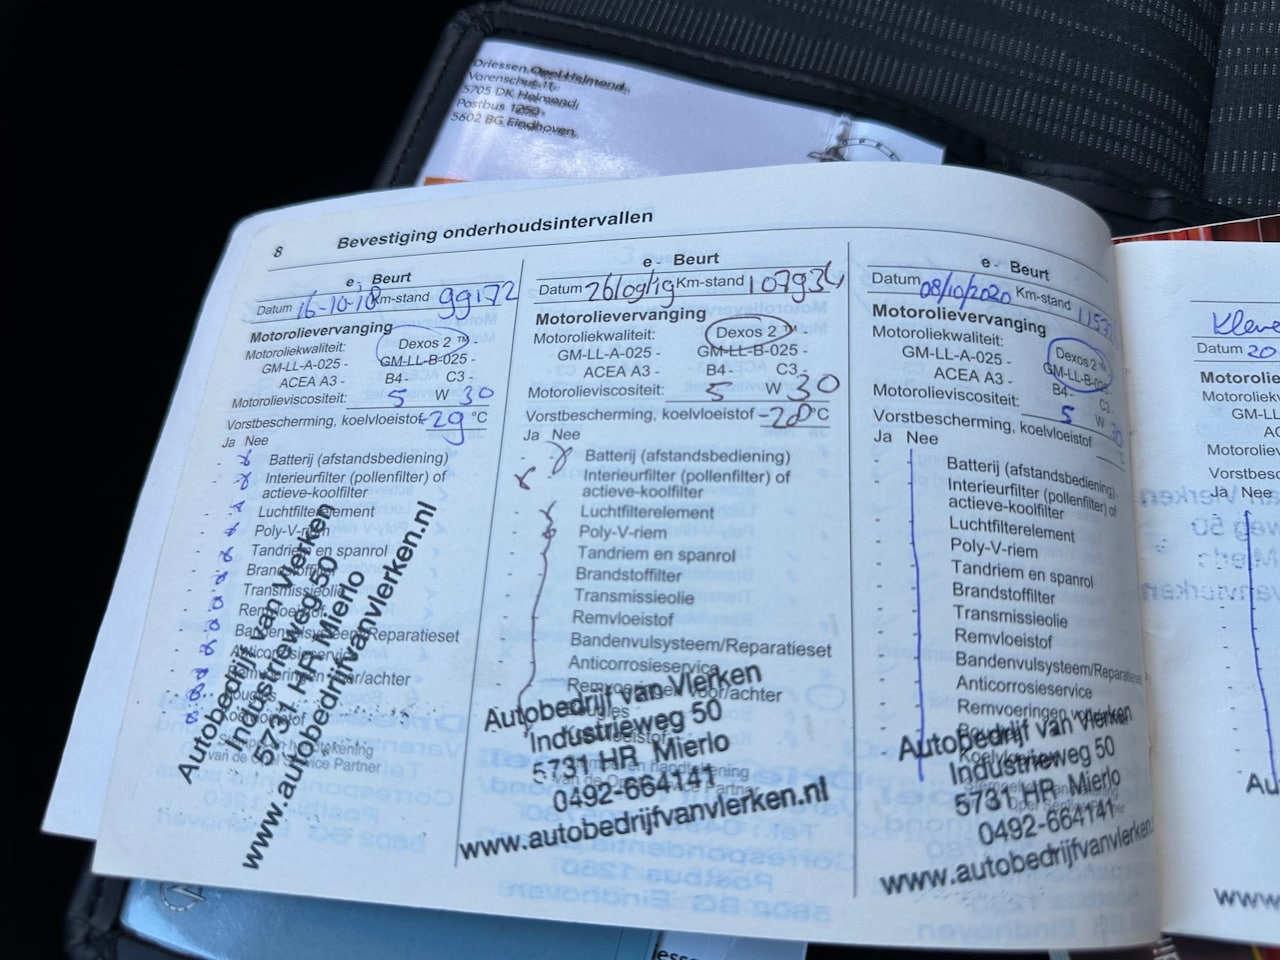 Driessen Opel Helmond
Varenschut 11
5705 DK Helmond
Postbus 1250
5602 BG Eindhoven
8
Bevestiging onderhoudsintervallen
e - Beurt
Datum 16-10-18 Km-stand 99172
Motorolievervanging
Motoroliekwaliteit: Dexos 2 ™ -
GM-LL-A-025 - GM-LL-B-025 -
ACEA A3 - B4 - C3 -
Motorolieviscositeit: 5 W 30
Vorstbescherming, koelvloeistof -29 °C
Ja Nee
Batterij (afstandsbediening)
Interieurfilter (pollenfilter) of
actieve-koolfilter
Luchtfilterelement
Poly-V-riem
Tandriem en spanrol
Brandstoffilter
Transmissieolie
Remvloeistof
Bandenvulsysteem/Reparatieset
Anticorrosieservice
Remvoeringen voor/achter
Bougies
Koelvloeistof
Stempel en handtekening
van de Opel Service Partner
Autobedrijf van Vlerken
Industrieweg 50
5731 HR Mierlo
www.autobedrijfvanvlerken.nl
e - Beurt
Datum 26/09/19 Km-stand 107934
Motorolievervanging
Motoroliekwaliteit: Dexos 2 ™
GM-LL-A-025 - GM-LL-B-025 -
ACEA A3 - B4 - C3 -
Motorolieviscositeit: 5 W 30
Vorstbescherming, koelvloeistof -20 °C
Ja Nee
Batterij (afstandsbediening)
Interieurfilter (pollenfilter) of
actieve-koolfilter
Luchtfilterelement
Poly-V-riem
Tandriem en spanrol
Brandstoffilter
Transmissieolie
Remvloeistof
Bandenvulsysteem/Reparatieset
Anticorrosieservice
Remvoeringen voor/achter
Bougies
Koelvloeistof
Stempel en handtekening
van de Opel Service Partner
Autobedrijf van Vlerken
Industrieweg 50
5731 HR Mierlo
0492-664141
www.autobedrijfvanvlerken.nl
e - Beurt
Datum 08/10/2020 Km-stand
Motorolievervanging
Motoroliekwaliteit: Dexos 2
GM-LL-A-025 - GM-LL-B-025
ACEA A3 - B4 - C3 -
Motorolieviscositeit: 5 W 30
Vorstbescherming, koelvloeistof °C
Ja Nee
Batterij (afstandsbediening)
Interieurfilter (pollenfilter) of
actieve-koolfilter
Luchtfilterelement
Poly-V-riem
Tandriem en spanrol
Brandstoffilter
Transmissieolie
Remvloeistof
Bandenvulsysteem/Reparatieset
Anticorrosieservice
Remvoeringen
Autobedrijf van Vlerken
Industrieweg 50
5731 HR Mierlo
0492-664141
www.autobedrijfvanvlerken.
Datum 20
Ja Nee
www